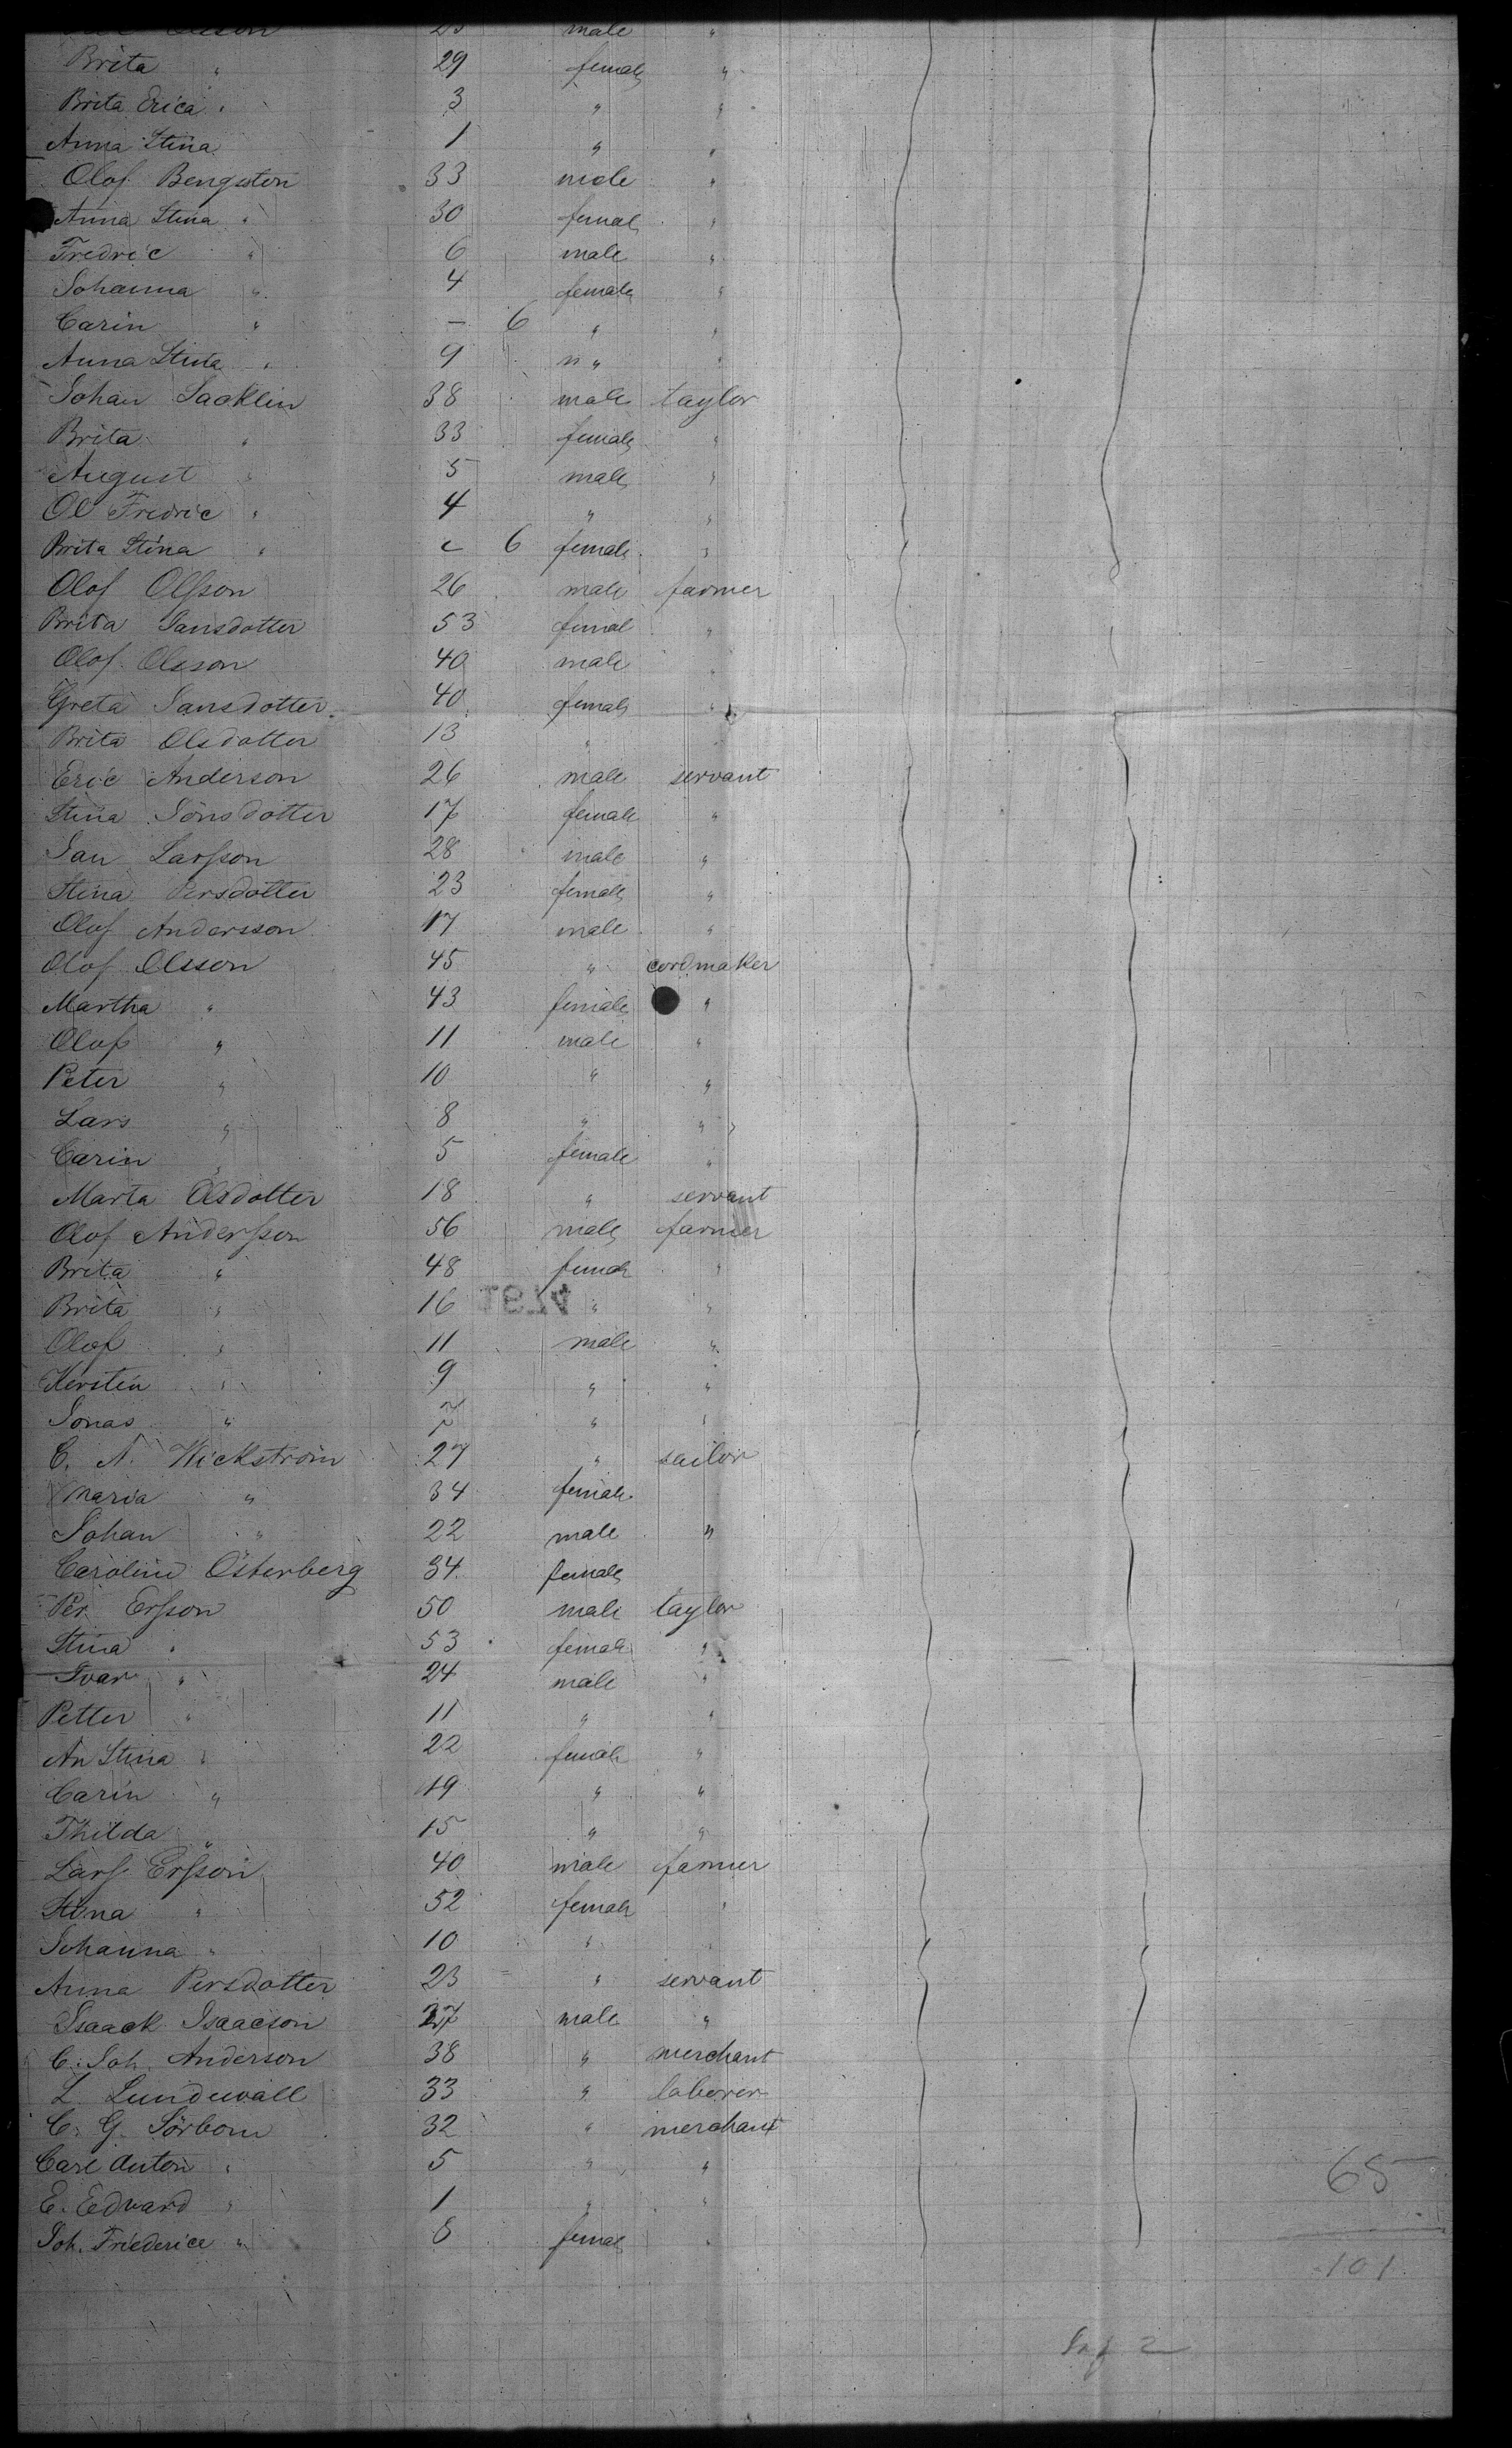 Olsson 25 male "
Brita " 29 female "
Brita Erica " 3 " "
Anna Stina 1 " "
Olof Bengston 33 male "
Anna Stina " 30 female "
Fredric " 6 male "
Johanna " 4 female "
Carin " – 6 " "
Anna Stina " 9 " "
Johan Sacklin 38 male taylor
Brita " 33 female "
August " 5 male "
Ol Fredric " 4 " "
Brita Stina " 6 female "
Olof Olsson 26 male farmer
Brita Jansdotter 53 femal "
Olof Olsson 40 male "
Greta Jansdotter 40 female "
Brita Olsdotter 13 " "
Eric Anderson 26 male servant
Stina Jönsdotter 17 female "
Jan Larsson 28 male "
Stina Persdotter 23 female "
Olof Andersson 17 male "
Olof Olsson 45 " cordmaker
Martha " 43 female "
Olof " 11 male "
Peter " 10 " "
Lars " 8 " "
Carin " 5 female "
Marta Olsdotter 18 " servant
Olof Andersson 56 male farmer
Brita " 48 female "
Brita " 16 " "
Olof " 11 male "
Kersten " 9 " "
Jonas " 7 " "
C. A. Wickström 27 " sailor
Maria " 34 female
Johan " 22 male "
Carolina Österberg 34 female
Per Ersson 50 male taylor
Stina " 53 female "
Ivar " 24 male "
Petter " 11 " "
An Stina " 22 female "
Carin " 19 " "
Thilda " 15 " "
Lars Ersson 40 male farmer
Stina " 52 female "
Johanna " 10 " "
Anna Persdotter 23 " servant
Isaack Isaacson 27 male "
C. Joh. Anderson 38 " merchant
L Lundewall 33 " laborer
C. G. Sörbom 32 " merchant
Carl Anton " 5 " "
E. Edward " 1 " "
Joh. Friederice " 8 female "
65
101